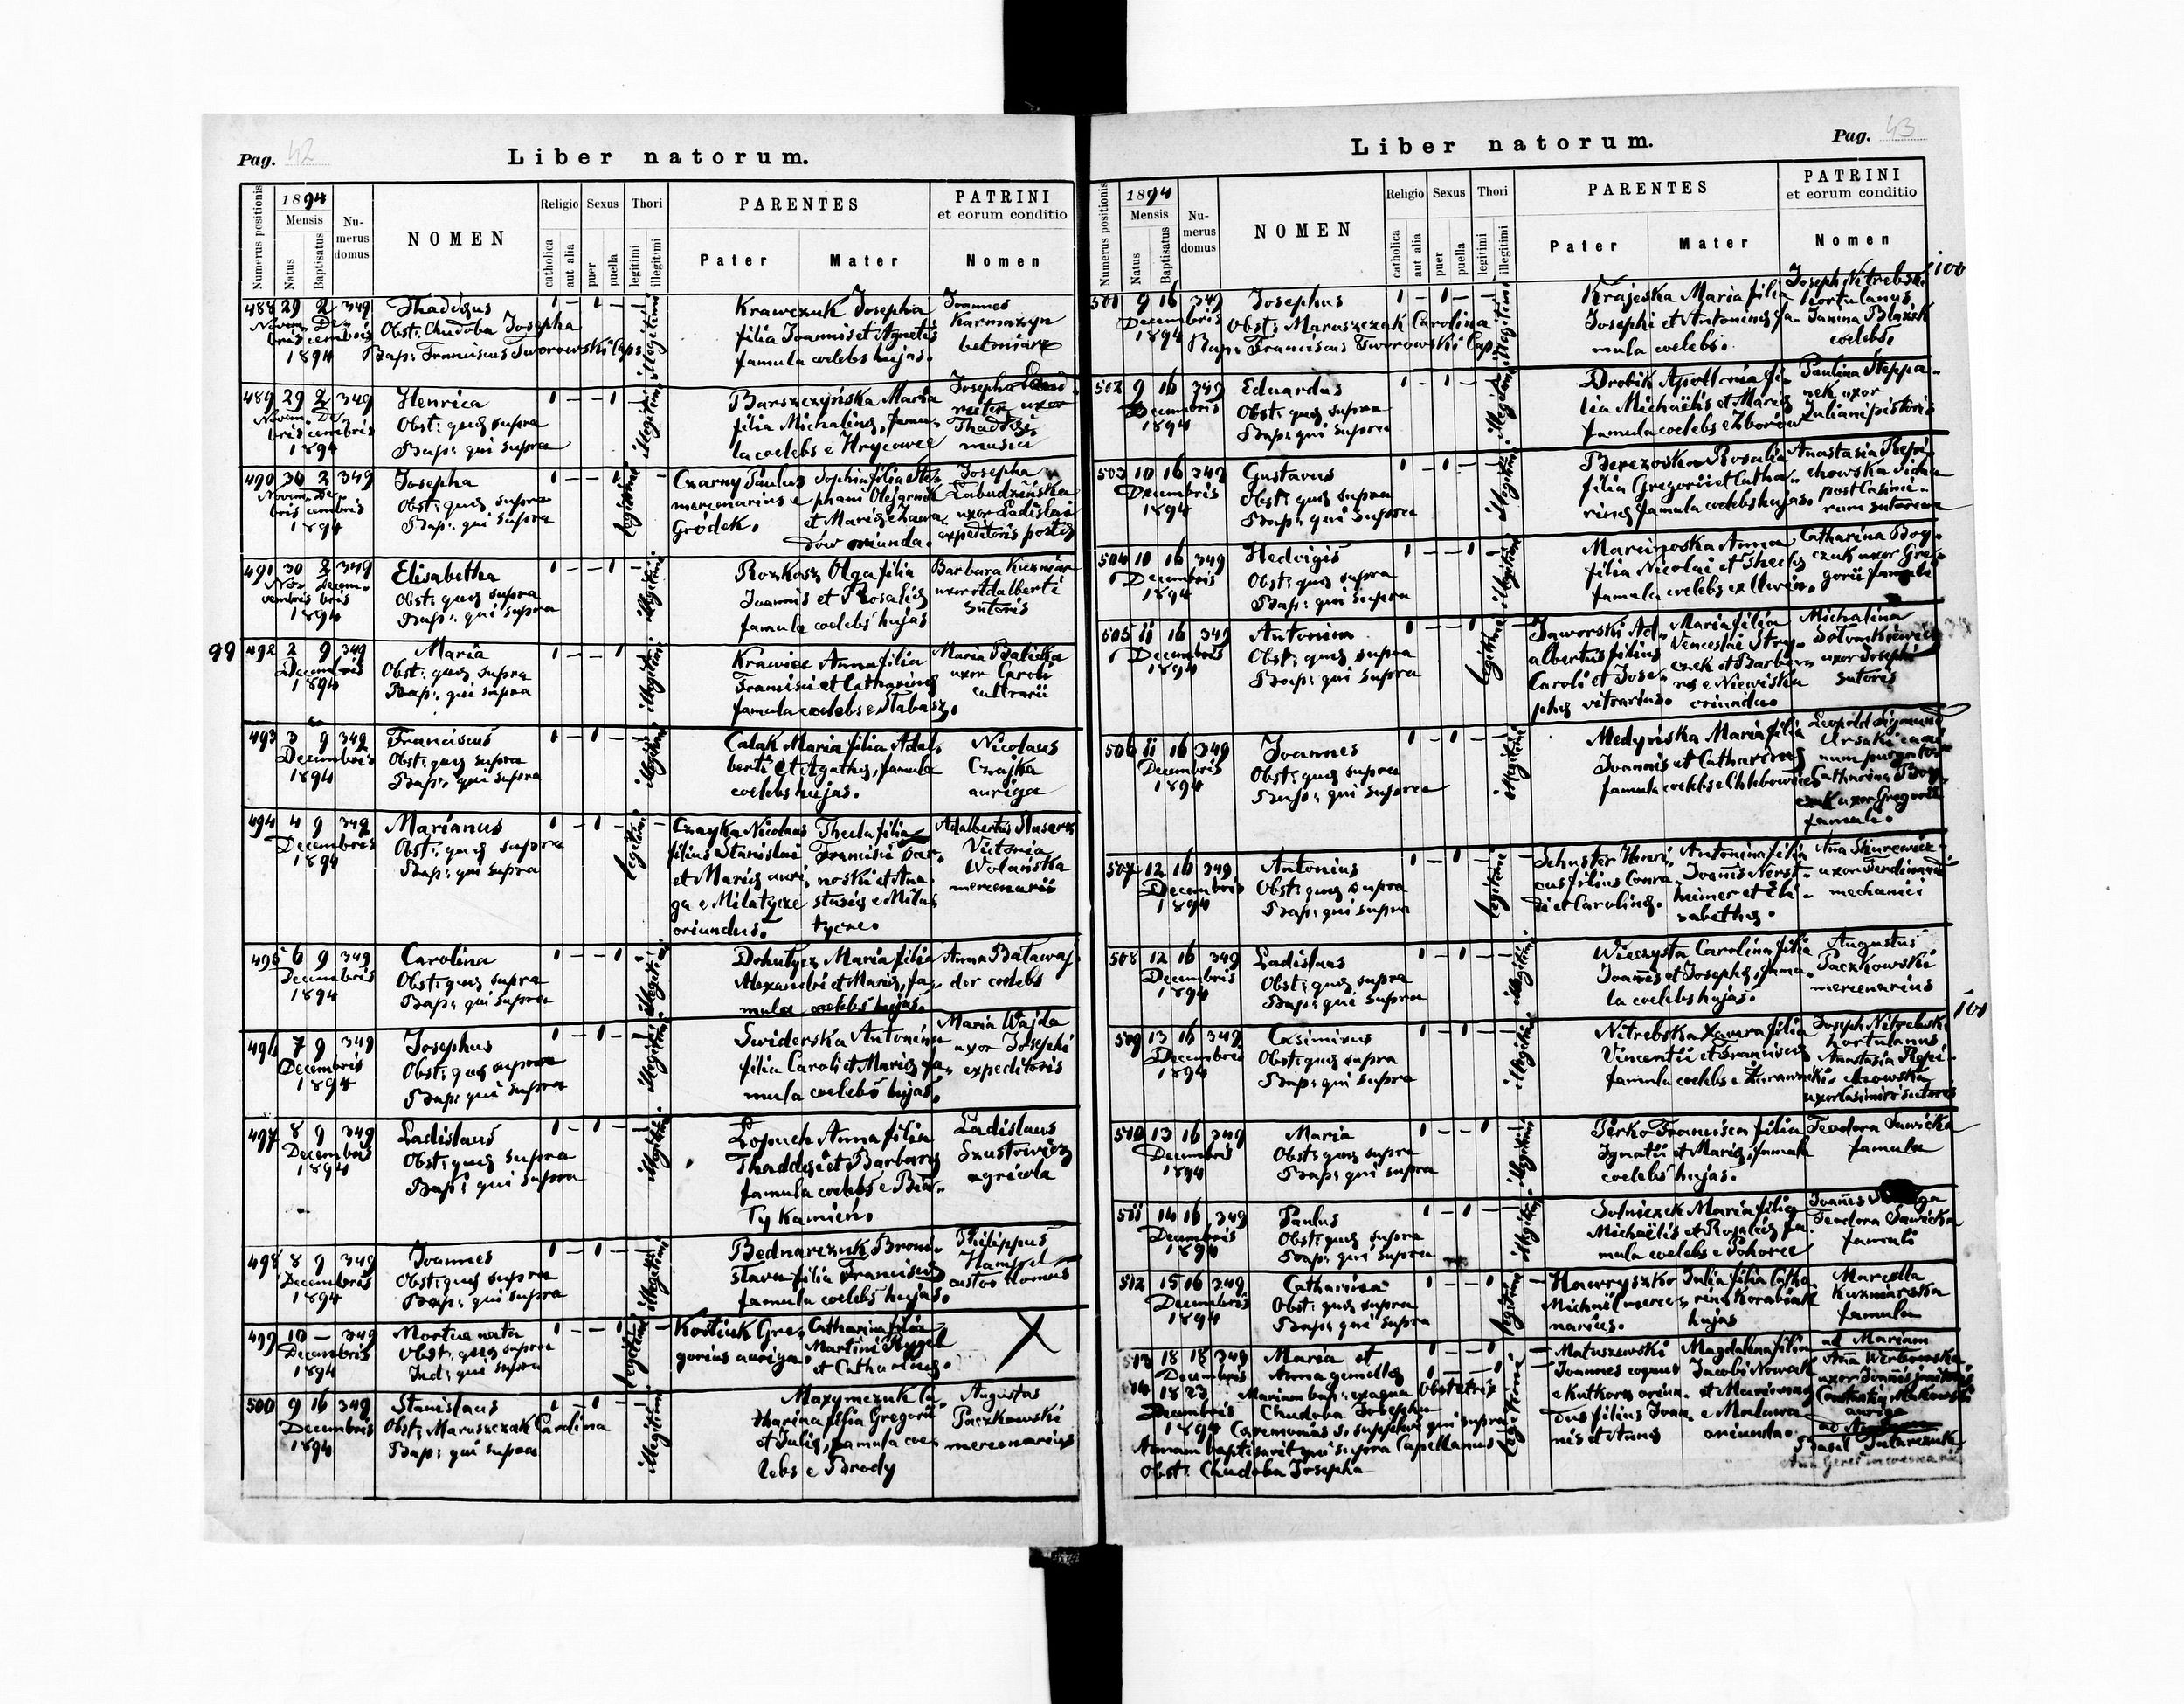 Pag. 42
Liber natorum.
Numerus positionis
1894
Mensis
Natus
Baptisatus
Nu-
merus
domus
NOMEN
Religio
catholica
aut alia
Sexus
puer
puella
Thori
legitimi
illegitimi
PARENTES
Pater
Mater
PATRINI
et eorum conditio
Nomen
488 29 2 349
Novem- De-
bris cembris
1894
Thadeus
Obst: Chudoba Josepha
Bap: Franciscus Tworowski Cap.
1 – 1 – –
illegitimi
Krawczuk Josepha
filia Joannis et Agnetis
famula coelebs hujas.
Joannes
Karmazyn
betoniarz
489 29 2 349
Novem- De-
bris cembris
1894
Henrica
Obst: quae supra
Bap: qui supra
1 – – 1 –
illegitimi
Barszczyńska Maria
filia Michalinae, famu-
la coelebs e Hrycowce
Josepha
uxor
Thadaei
musici
490 30 2 349
Novem- De-
bris cembris
1894
Josepha
Obst: quae supra
Bap: qui supra
1 – – 1 –
legitimi
Czarny Paulus
mercenarius e
Gródek.
Sophia filia Ste-
phani Olejarnik
et Mariae e Zawa-
dów oriunda.
Josepha
Łabudzińska
uxor Ladislai
expeditoris postae
491 30 2 349
No- Decem-
vembris bris
1894
Elisabetha
Obst: quae supra
Bap: qui supra
1 – – 1
illegitimi
Rozkosz Olga filia
Joannis et Rosaliae
famula coelebs hujas
Barbara Kuzniar
uxor Adalberti
sutoris
99 492 2 9 349
Decembris
1894
Maria
Obst: quae supra
Bap: qui supra
1 – – 1
illegitimi
Krawiec Anna filia
Francisci et Catharinae
famula coelebs e Tłabasz.
Maria Balicka
uxor Caroli
cultrarii
493 3 9 349
Decembris
1894
Franciscus
Obst: quae supra
Bap: qui supra
1 – 1 –
illegitimi
Calak Maria filia Adal-
berti et Agathae, famula
coelebs hujas.
Nicolaus
Czajka
auriga
494 4 9 349
Decembris
1894
Marianus
Obst: quae supra
Bap: qui supra
1 – 1 –
legitimi
Czayka Nicolaus
filius Stanislai
et Mariae auri-
ga e Milatycze
oriundus.
Thecla filia
Francisci Sar-
noski et Ana-
stasiae e Mila-
tycze.
Adalbertus Slusarz
Victoria
Wolańska
mercenarii
495 6 9 349
Decembris
1894
Carolina
Obst: quae supra
Bap: qui supra
1 – – 1
illegitimi
Dohutycz Maria filia
Alexandri et Mariae, fa-
mula coelebs hujas.
Anna Batawaj-
der coelebs
496 7 9 349
Decembris
1894
Josephus
Obst: quae supra
Bap: qui supra
1 – 1 –
illegitimi
Swiderska Antonina
filia Caroli et Mariae fa-
mula coelebs hujas.
Maria Wajda
uxor Josephi
expeditoris
497 8 9 349
Decembris
1894
Ladislaus
Obst: quae supra
Bap: qui supra
1 – 1 –
illegitimi
Łopuch Anna filia
Thaddaei et Barbarae
famula coelebs e Bia-
ły Kamień.
Ladislaus
Szustowicz
agricola
498 8 9 349
Decembris
1894
Joannes
Obst: quae supra
Bap: qui supra
1 – 1 –
illegitimi
Bednarczuk Broni-
slava filia Franciscae
famula coelebs hujas.
Philippus
Hampel
custos domus
499 10 – 349
Decembris
1894
Mortua nata
Obst: quae supra
Ind: qui supra
1 – – 1
legitimi
Kostiuk Gre-
gorius auriga.
Catharina filia
Martini Rygel
et Catharinae.
X
500 9 16 349
Decembris
1894
Stanislaus
Obst: Maruszczak Carolina
Bap: qui supra
1 – 1 –
illegitimi
Maxymczuk Ca-
tharina filia Gregorii
et Juliae, famula coe-
lebs e Brody
Augustus
Paczkowski
mercenarius
Pag. 43
Liber natorum.
Numerus positionis
1894
Mensis
Natus
Baptisatus
Nu-
merus
domus
NOMEN
Religio
catholica
aut alia
Sexus
puer
puella
Thori
legitimi
illegitimi
PARENTES
Pater
Mater
PATRINI
et eorum conditio
Nomen
100
501 9 16 349
Decembris
1894
Josephus
Obst: Maruszczak Carolina
Bap: Franciscus Tworowski Cap.
1 – 1 –
illegitimi
Krajeska Maria filia
Josephi et Antoninae fa-
mula coelebs.
Joseph Nitrebski
hortulanus
Janina Blazek
coelebs.
502 9 16 349
Decembris
1894
Eduardus
Obst: quae supra
Bap: qui supra
1 – 1 –
illegitimi
Drobik Apollonia fi-
lia Michaëlis et Mariae
famula coelebs e Zborów
Paulina Steppa-
nek uxor
Juliani pistoris
503 10 16 349
Decembris
1894
Gustavus
Obst: quae supra
Bap: qui supra
1 – 1 –
illegitimi
Berezoska Rosalia
filia Gregorii et Catha-
rinae famula coelebs hujas.
Anastasia Repi-
chowska vidua
post Casimi-
rum sutorem
504 10 16 349
Decembris
1894
Hedvigis
Obst: quae supra
Bap: qui supra
1 – – 1
illegitimi
Marcinoska Anna
filia Nicolai et Theclae
famula coelebs ex Uwin.
Catharina Boy-
czuk uxor Gre-
gorii famuli
505 11 16 349
Decembris
1894
Antonina
Obst: quae supra
Bap: qui supra
1 – – 1
legitimi
Jaworski Ad-
albertus filius
Caroli et Jose-
phae vitrarius.
Maria filia
Venceslai Stry-
czek et Barba-
rae e Niewiska
oriunda.
Michalina
uxor Josephi
sutoris
506 11 16 349
Decembris
1894
Joannes
Obst: quae supra
Bap: qui supra
1 – 1 –
illegitimi
Medyńska Maria filia
Joannis et Catharinae
famula coelebs e Chlebowice
Leopold Sigmund
Ursaki cami-
num purgator
Catharina Boy-
czuk uxor Gregorii
famuli.
507 12 16 349
Decembris
1894
Antonius
Obst: quae supra
Bap: qui supra
1 – 1 –
legitimi
Schuster Henri-
cus filius Conra-
di et Carolinae.
Antonina filia
Joannis Nerst-
heimer et Eli-
sabethae.
Anna Skurewicz
uxor Ferdinandi
mechanici
508 12 16 349
Decembris
1894
Ladislaus
Obst: quae supra
Bap: qui supra
1 – 1 –
illegitimi
Wieczysta Carolina filia
Joannis et Josephae, famu-
la coelebs hujas.
Augustus
Paczkowski
mercenarius
101
509 13 16 349
Decembris
1894
Casimirus
Obst: quae supra
Bap: qui supra
1 – 1 –
illegitimi
Nitrebska Xavera filia
Vincentii et Franciscae
famula coelebs e Żurawniki.
Joseph Nitrebski
hortulanus
Anastasia Repi-
chowska
uxor Casimiri sutoris
510 13 16 349
Decembris
1894
Maria
Obst: quae supra
Bap: qui supra
1 – – 1
illegitimi
Pirko Francisca filia
Ignatii et Mariae, famula
coelebs hujas.
Teodora Sawicka
famula
511 14 16 349
Decembris
1894
Paulus
Obst: quae supra
Bap: qui supra
1 – 1 –
illegitimi
Solniczek Maria filia
Michaëlis et Rosaliae fa-
mula coelebs e Pohorce
Joannes
Teodora Sawicka
famuli
512 15 16 349
Decembris
1894
Catharina
Obst: quae supra
Bap: qui supra
1 – – 1
legitimi
Hawryszko
Michaël merce-
narius.
Julia filia Catha-
rinae Korabiak
hujas
Marcella
Kuzniarska
famula
513 18 18 349
Decembris
514 18 23
Decembris
1894
Maria et
Anna gemellae
Mariam bap: ex aqua Obstetrix
Chudoba Josepha
Caeremonias supplevit qui supra
Annam baptisavit qui supra Capellanus
Obst: Chudoba Josepha
1 – – 1
1 – – 1
legitimi
Matuszewski
Joannes coquus
e Kutkorz oriun-
dus filius Joan-
nis et Annae
Magdalena filia
Jacobi Nowak
et Mariannae
e Malawa
oriunda.
ad Mariam
Anna Werbowska
uxor Joannis
auriga
ad
Basil